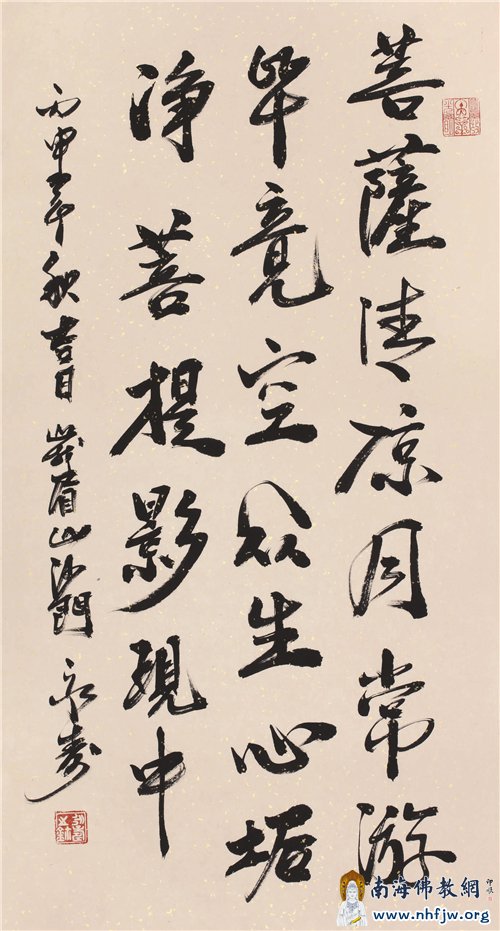 菩薩清凉月常游
毕竟空众生心垢
净菩提影現中
丙申年秋吉日峨眉山沙門永寿
南海佛教網
www.nhfjw.org